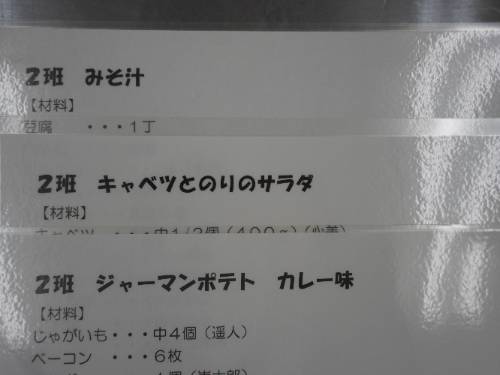 2班 みそ汁
【材料】
豆腐 ・・・1丁
2班 キャベツとのりのサラダ
【材料】
キャベツ ・・・中1/2個(400g)
2班 ジャーマンポテト カレー味
【材料】
じゃがいも・・・中4個(遥人)
ベーコン ・・・6枚